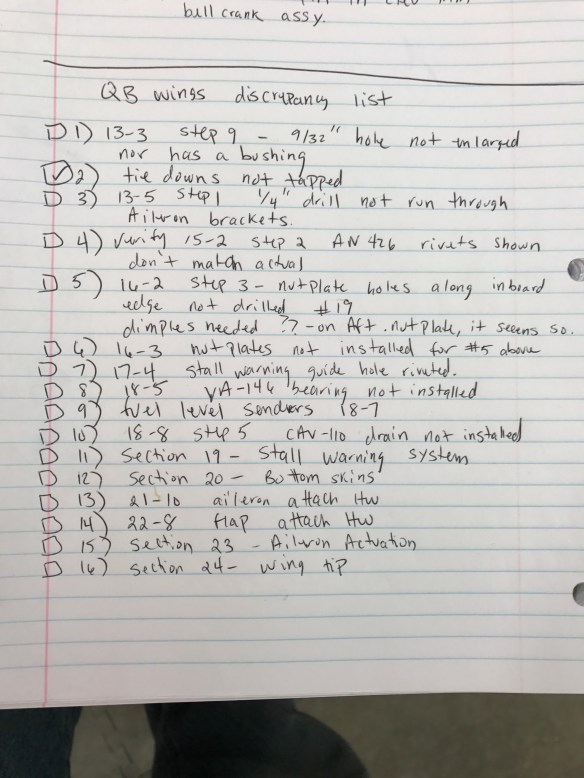 bell crank assy.
QB wings discrepancy list
1) 13-3 step 9 - 9/32" hole not enlarged
nor has a bushing
2) tie downs not tapped
3) 13-5 step 1 1/4" drill not run through
Aileron brackets.
4) verify 15-2 step 2 AN 426 rivets shown
don't match actual
5) 16-2 step 3 - nutplate holes along inboard
edge not drilled #19
dimples needed ?? - on Aft. nutplate, it seems so.
6) 16-3 nutplates not installed for #5 above
7) 17-4 stall warning guide hole riveted.
8) 18-5 VA-146 bearing not installed
9) fuel level senders 18-7
10) 18-8 step 5 CAV-110 drain not installed
11) Section 19 - Stall warning system
12) Section 20 - Bottom skins
13) 21-10 aileron attach Hw
14) 22-8 flap attach Hw
15) Section 23 - Aileron Actuation
16) Section 24 - wing tip